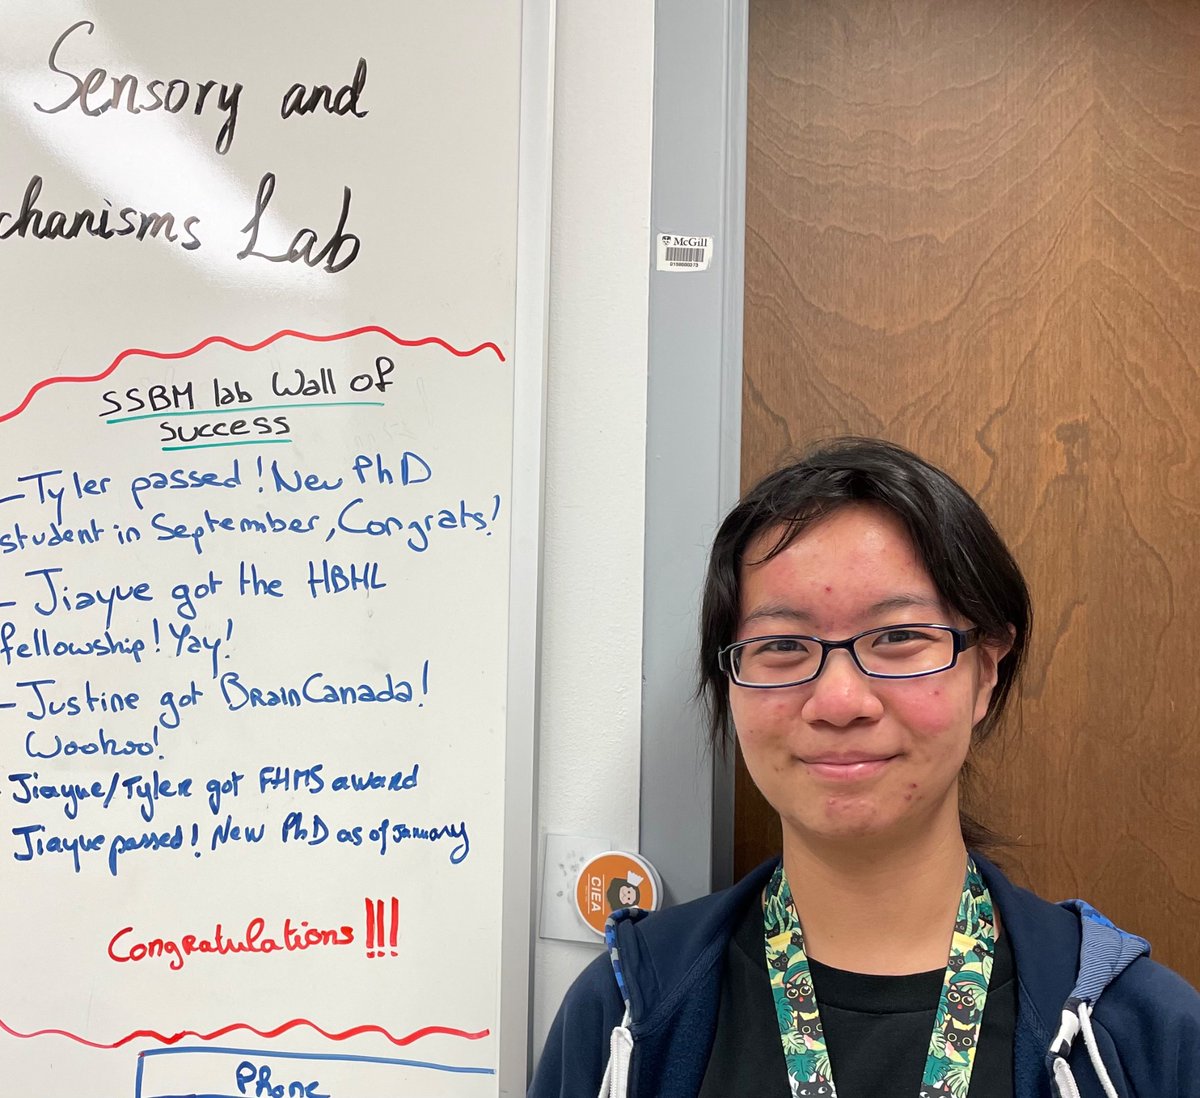 Sensory and
chanisms Lab
McGill
SSBM lab Wall of
success
- Tyler passed! New PhD
student in September, Congrats!
- Jiayue got the HBHL
fellowship! Yay!
- Justine got BrainCanada!
Woohoo!
- Jiayue/Tyler got FHMS award
Jiayue passed! New PhD as of January
CIEA
Congratulations!!!
Phone